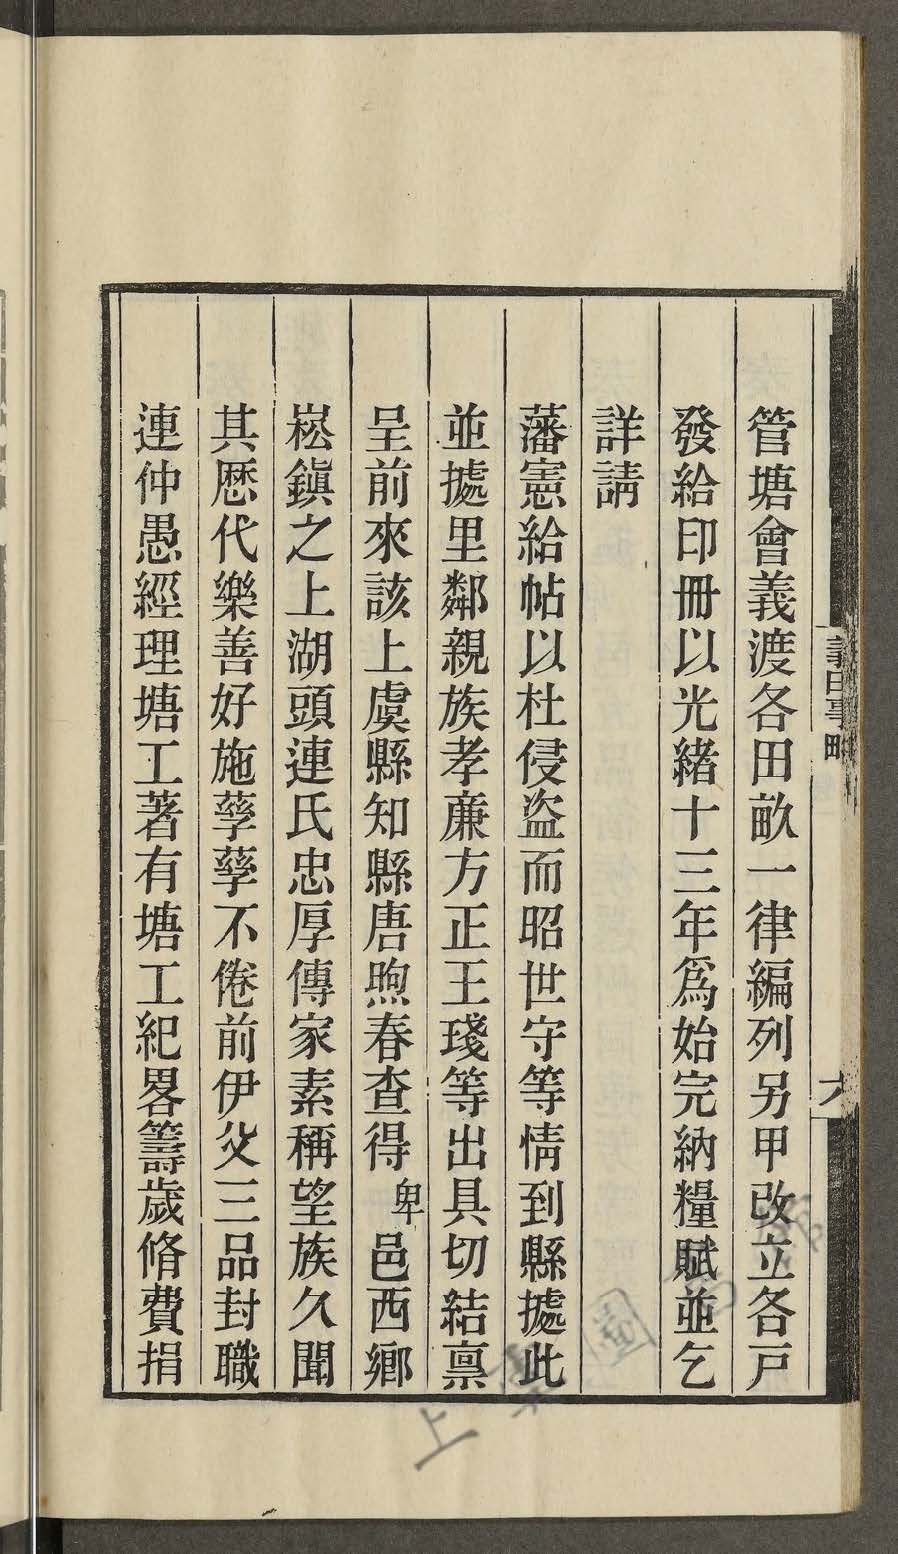 管塘會義渡各田畝一律編列另甲改立各戸
發給印冊以光緒十三年爲始完納糧賦並乞
詳請
藩憲給帖以杜侵盜而昭世守等情到縣據此
並據里鄰親族孝廉方正王琖等出具切結禀
呈前來該上虞縣知縣唐煦春查得卑邑西鄉
崧鎭之上湖頭連氏忠厚傳家素稱望族久聞
其歴代樂善好施孳孳不倦前伊父三品封職
連仲愚經理塘工著有塘工紀畧籌歲脩費捐